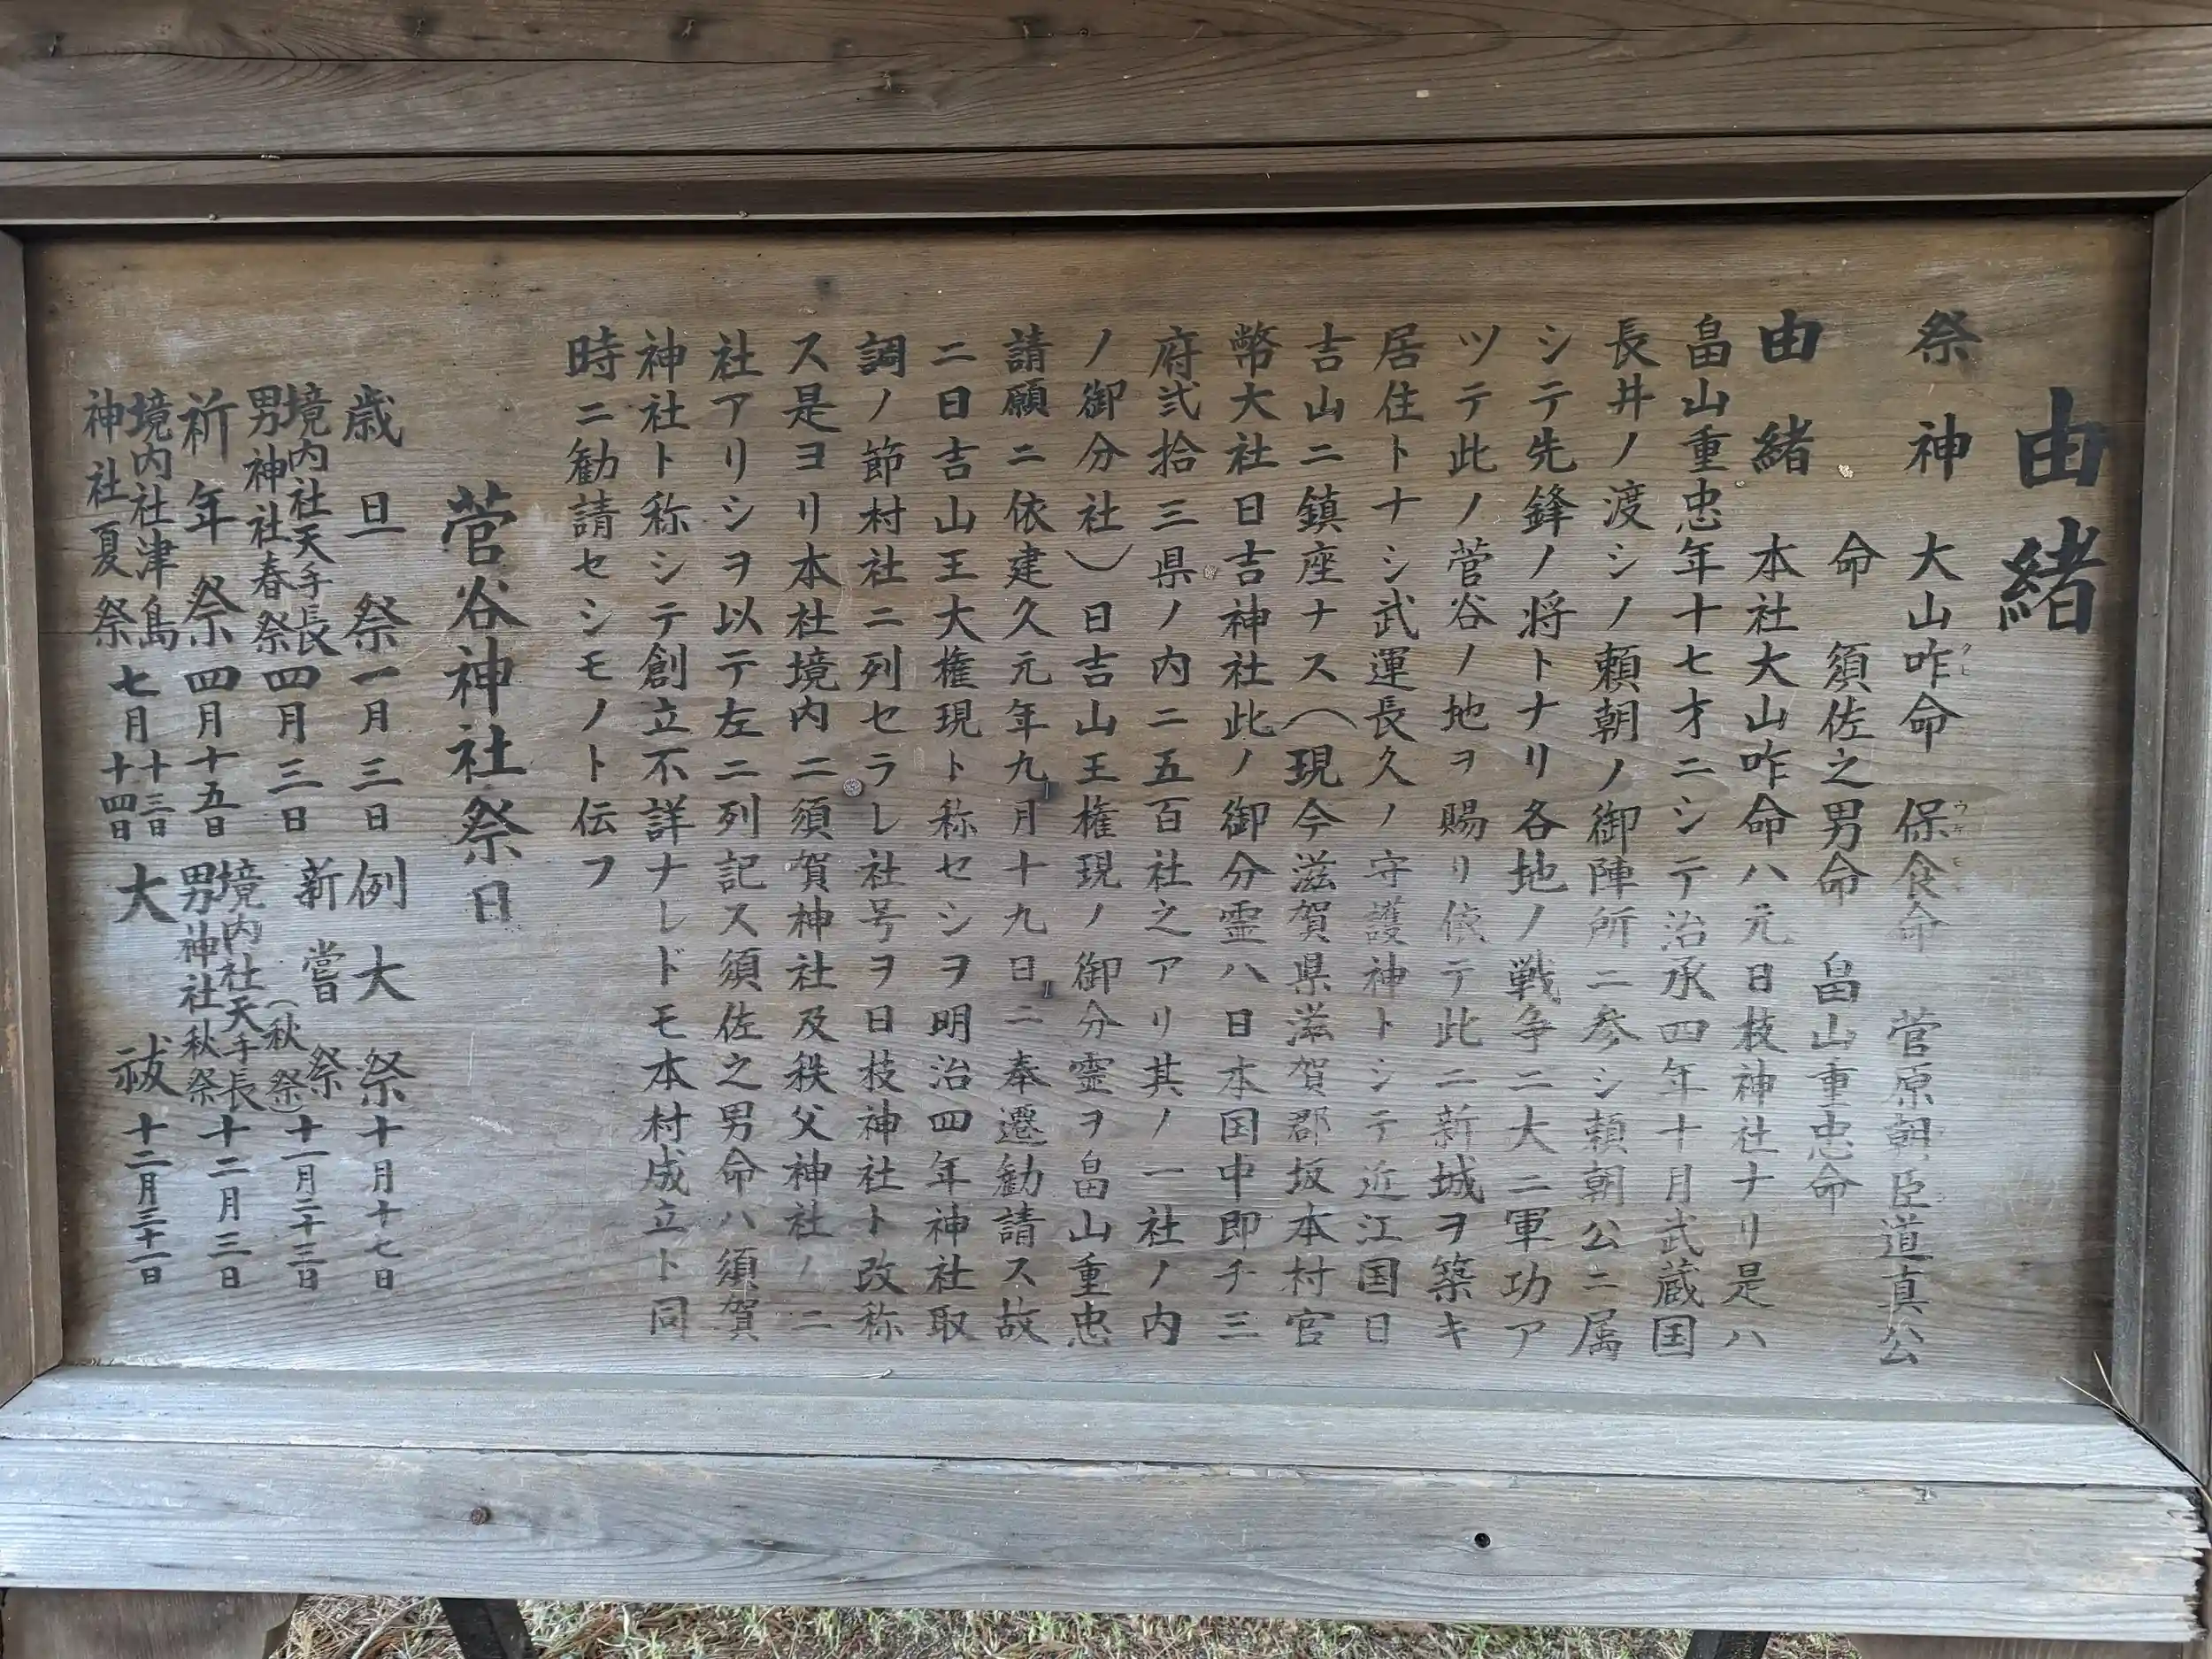 由緒
祭神　大山咋命　保食命　菅原朝臣道真公
命　須佐之男命　畠山重忠命
由緒　本社大山咋命ハ元日枝神社ナリ是ハ
畠山重忠年十七才ニシテ治承四年十月武蔵国
長井ノ渡シノ頼朝ノ御陣所ニ参シ頼朝公ニ属
シテ先鋒ノ将トナリ各地ノ戦争ニ大ニ軍功ア
ツテ此ノ菅谷ノ地ヲ賜リ依テ此ニ新城ヲ築キ
居住トナシ武運長久ノ守護神トシテ近江国日
吉山ニ鎮座ナス（現今滋賀県滋賀郡坂本村官
幣大社日吉神社此ノ御分霊ハ日本国中即チ三
府弐拾三県ノ内ニ五百社之アリ其ノ一社ノ内
ノ御分社）日吉山王権現ノ御分霊ヲ畠山重忠
請願ニ依建久元年九月十九日ニ奉遷勧請ス故
ニ日吉山王大権現ト称セシヲ明治四年神社取
調ノ節村社ニ列セラレ社号ヲ日枝神社ト改称
ス是ヨリ本社境内ニ須賀神社及秩父神社ノ二
社アリシヲ以テ左ニ列記ス須佐之男命ハ須賀
神社ト称シテ創立不詳ナレドモ本村成立ト同
時ニ勧請セシモノト伝フ
菅谷神社祭日
歳旦祭一月三日　例大祭十月十七日
境内社天手長男神社春祭四月三日　新嘗祭（秋祭）十一月二十三日
祈年祭四月十五日　境内社天手長男神社秋祭十二月三日
境内社津島神社夏祭七月十三日十四日　大祓十二月三十一日